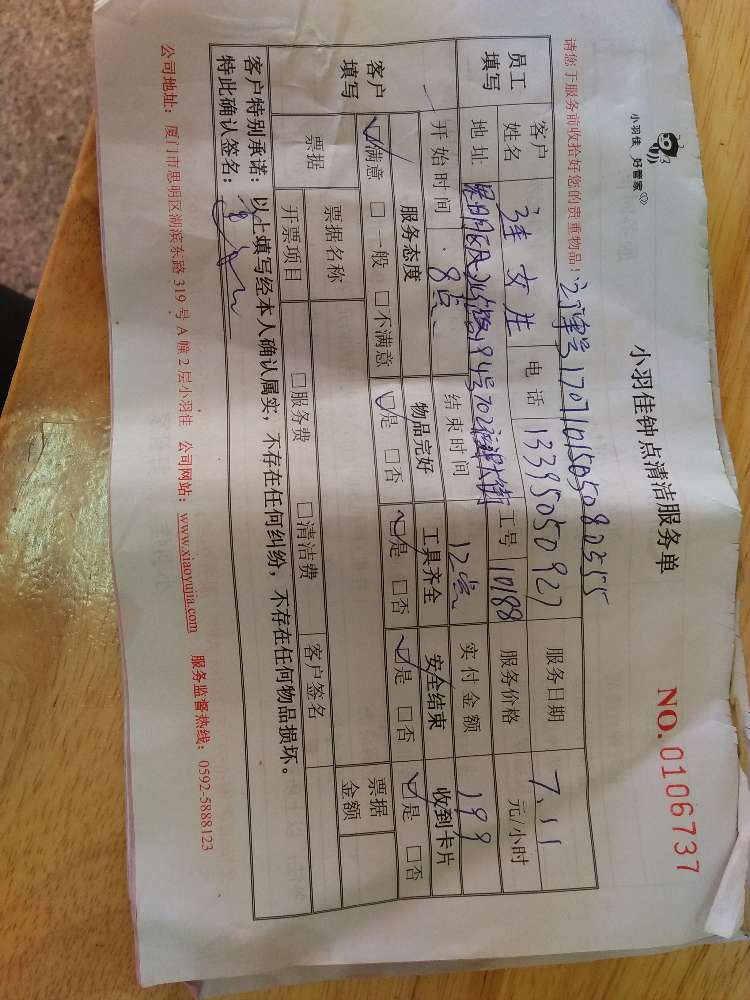 小羽佳 好管家
小羽佳钟点清洁服务单
NO.0106737
请您于服务前收拾好您的贵重物品！
员工填写 客户姓名 女士 电话 13395050927 服务日期 7.11
地址 194号702 工号 10188 服务价格 元/小时
开始时间 8点 结束时间 12点 实付金额 199
客户填写 服务态度 物品完好 工具齐全 安全结束 收到卡片
☑满意 □一般 □不满意 ☑是 □否 ☑是 □否 ☑是 □否 ☑是 □否
票据 票据名称 票据金额
开票项目 □服务费 □清洁费 客户签名
客户特别承诺：以上填写经本人确认属实，不存在任何纠纷，不存在任何物品损坏。
特此确认签名：
公司地址：厦门市思明区湖滨东路319号A幢2层小羽佳 公司网站：www.xiaoyujia.com 服务监督热线：0592-5888123